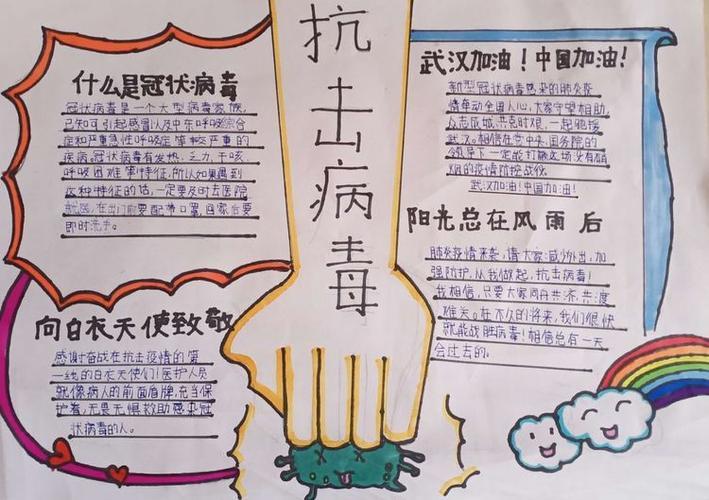 抗击病毒
什么是冠状病毒
冠状病毒是一个大型病毒家族,
已知可引起感冒以及中东呼吸综合
症和严重急性呼吸症等较严重的
疾病,冠状病毒有发热、乏力、干咳、
呼吸困难等特征,所以如果遇到
这种特征的话,一定要及时去医院
就医,在出门前要配带口罩,回家后要
即时洗手。
向白衣天使致敬
感谢奋战在抗击疫情的第
一线的白衣天使们!医护人员
就像病人的前面盾牌,充当保
护着,无畏无惧救助感染冠
状病毒的人。
武汉加油!中国加油!
新型冠状病毒感染的肺炎疫
情牵动全国人心,大家守望相助,
众志成城,共克时艰,一起驰援
武汉。相信在党中央、国务院的
领导下一定能打赢这场没有硝
烟的疫情防控战役。
武汉加油!中国加油!
阳光总在风雨后
肺炎疫情来袭,请大家:减少外出,加
强防护,从我做起,抗击病毒!
我相信,只要大家同舟共济,共渡
难关。在不久的将来,我们很快
就能战胜病毒!相信总有一天
会过去的。